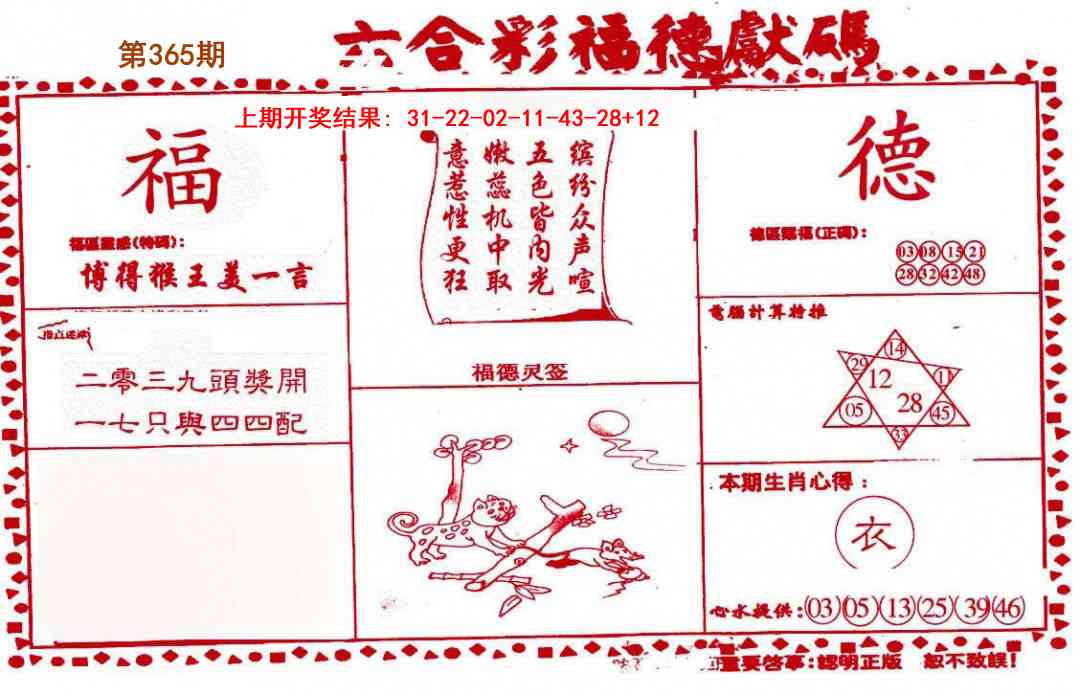 第365期
六合彩福德獻碼
上期开奖结果: 31-22-02-11-43-28+12
福
福區靈感(特碼):
博得猴王美一言
二零三九頭獎開
一七只與四四配
缤纷众声喧
五色皆内光
嫩蕊机中取
意惹性更狂
福德灵签
德
德區賜福(正碼):
03 08 15 21
28 32 42 48
電腦計算特推
14
29 12 11
05 28 45
33
本期生肖心得:
衣
心水提供:03 05 13 25 39 46
重要啓事:認明正版 恕不致誤!